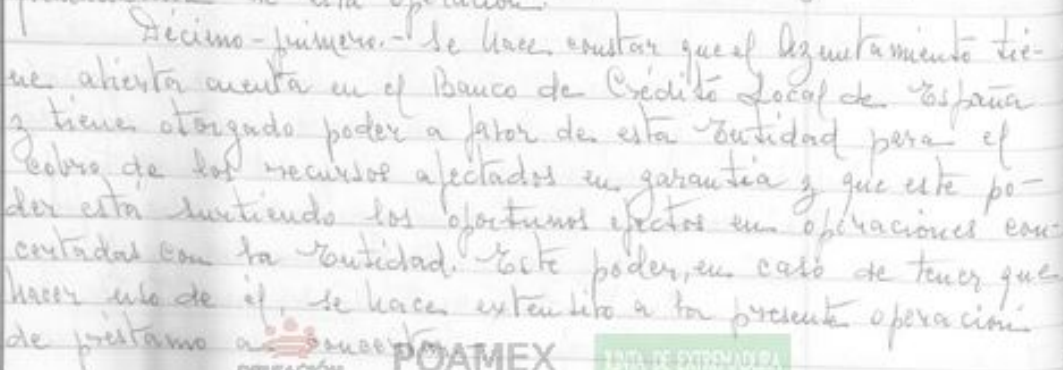 esta operación.
Décimo-primero.- Se hace constar que el Ayuntamiento tie-
ne abierta cuenta en el Banco de Crédito Local de España
y tiene otorgado poder a favor de esta Entidad para el
cobro de los recursos afectados en garantía y que este po-
der está surtiendo los oportunos efectos en operaciones con-
certadas con la Entidad. Este poder, en caso de tener que
hacer uso de él, se hace extensivo a la presente operación
de préstamo a
POAMEX
JUNTA DE EXTREMADURA